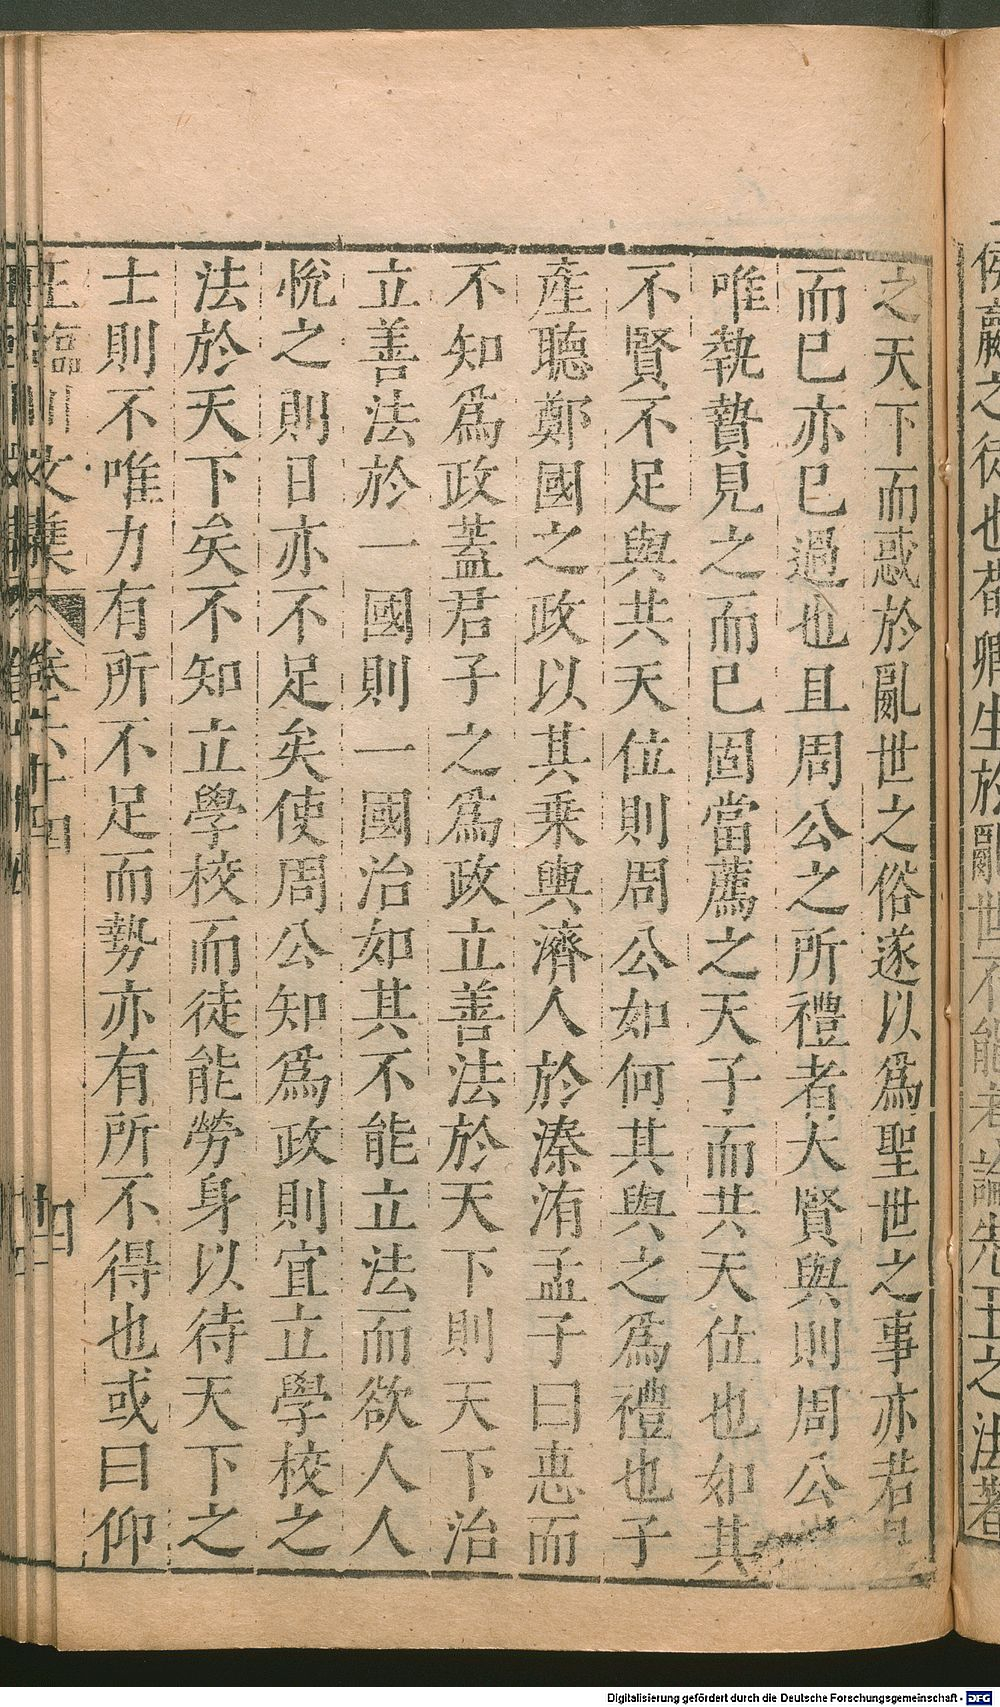 侯嬴之徒也荀卿生於亂世不能考論先王之法著
之天下而惑於亂世之俗遂以爲聖世之事亦若
而已亦已過也且周公之所禮者大賢與則周公
唯執贄見之而已固當薦之天子而共天位也如其
不賢不足與共天位則周公如何其與之爲禮也子
產聽鄭國之政以其乗輿濟人於溱洧孟子曰惠而
不知爲政蓋君子之爲政立善法於天下則天下治
立善法於一國則一國治如其不能立法而欲人人
悅之則日亦不足矣使周公知爲政則宜立學校之
法於天下矣不知立學校而徒能勞身以待天下之
士則不唯力有所不足而勢亦有所不得也或曰仰
王臨川文集 卷六十四 四
Digitalisierung gefördert durch die Deutsche Forschungsgemeinschaft - DFG